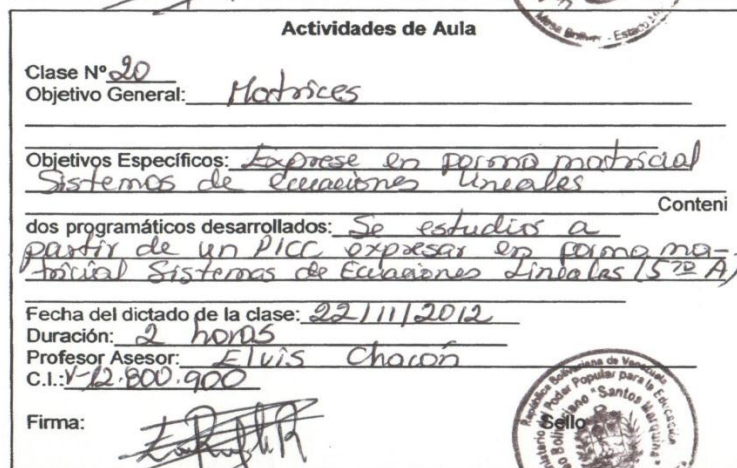 Mesa Bolívar - Estado
Actividades de Aula
Clase Nº 20
Objetivo General: Matrices
Objetivos Específicos: Exprese en forma matricial
Sistemas de ecuaciones lineales
Conteni
dos programáticos desarrollados: Se estudios a
partir de un PICC expresar en forma ma-
tricial Sistemas de Ecuaciones Lineales (5to A)
Fecha del dictado de la clase: 22/11/2012
Duración: 2 horas
Profesor Asesor: Elvis Chacón
C.I.: V-12.800.900
Firma:
Sello
República Bolivariana de Venezuela
Ministerio del Poder Popular para la Educación
"Santos Marquina